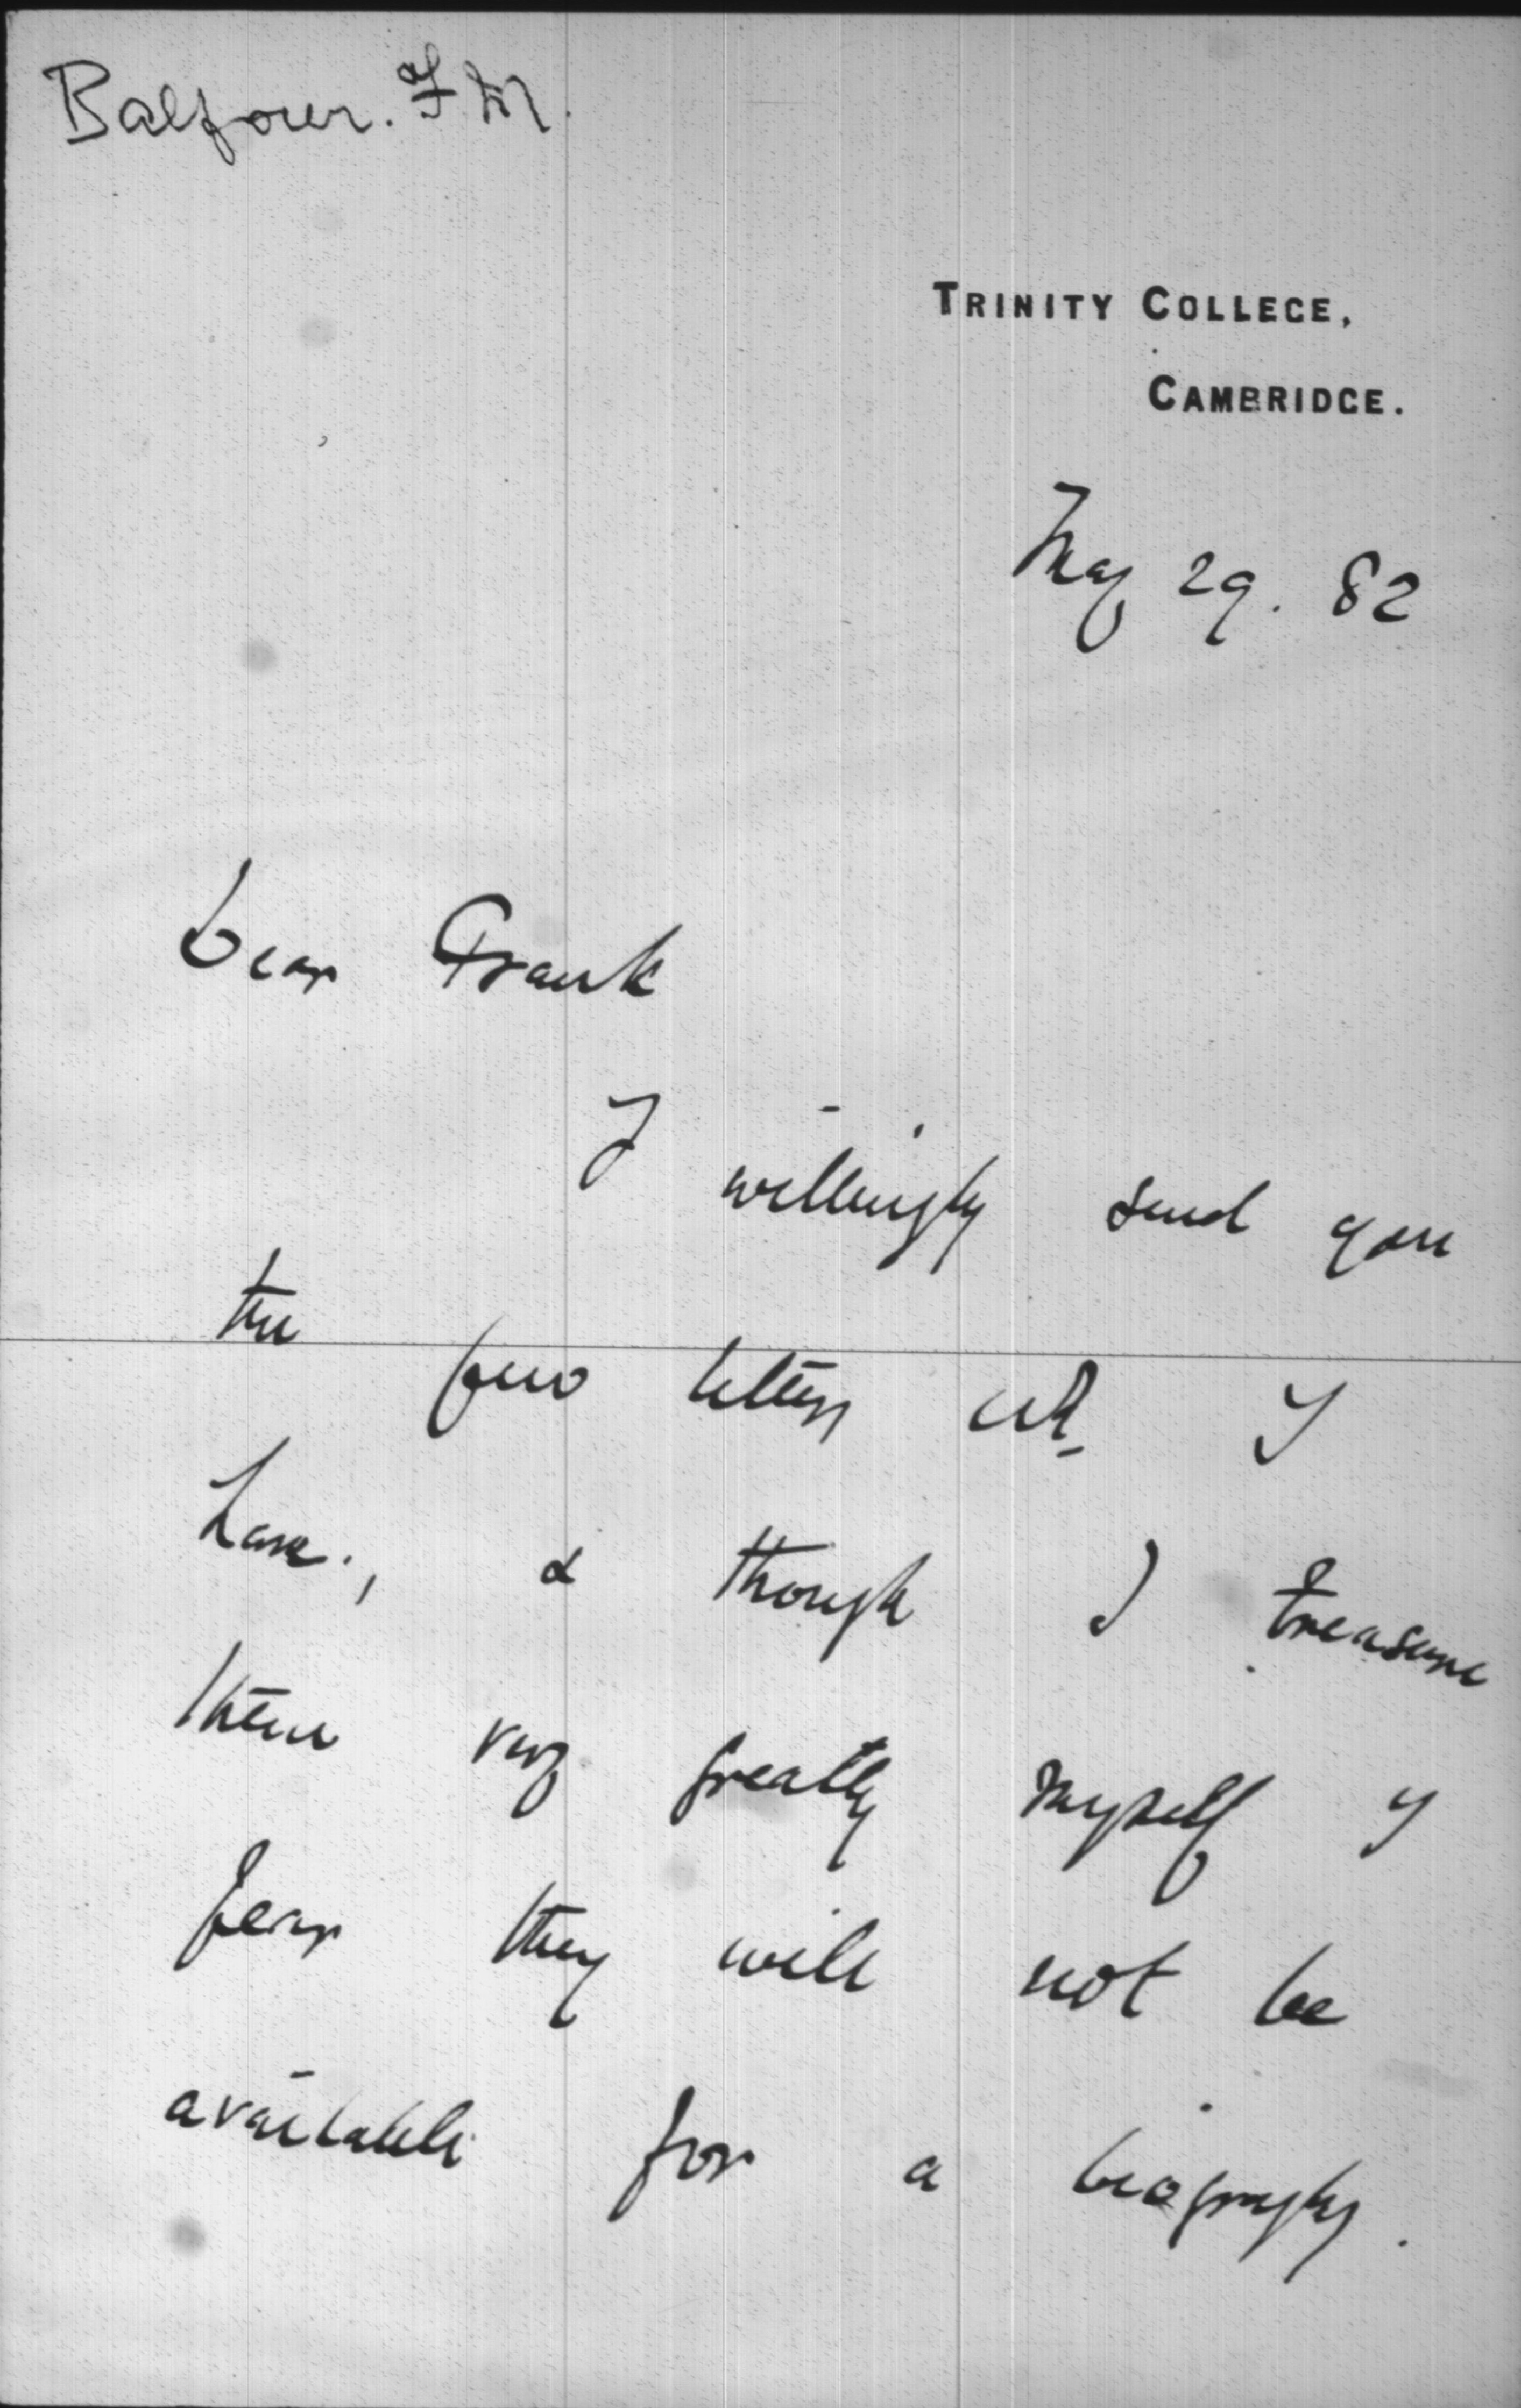 Balfour. F M.
TRINITY COLLEGE,
CAMBRIDGE.
May 29. 82
Dear Frank
I willingly send you
the few letters wh. I
have, & though I treasure
them very greatly myself I
fear they will not be
available for a biography.